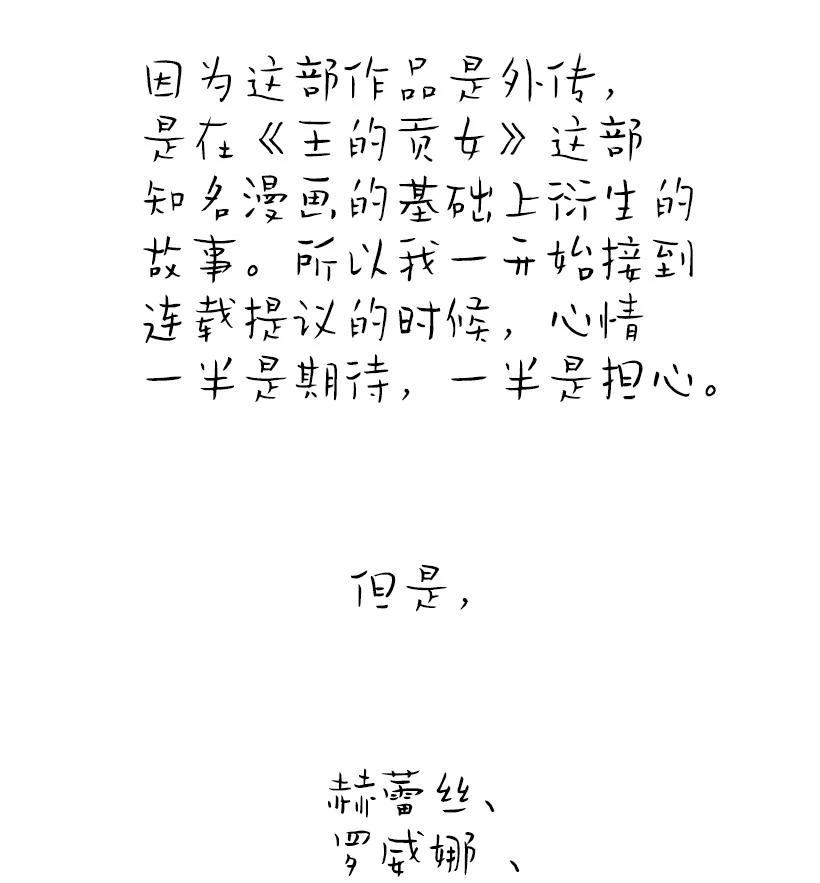 因为这部作品是外传，
是在《王的贡女》这部
知名漫画的基础上衍生的
故事。所以我一开始接到
连载提议的时候，心情
一半是期待，一半是担心。
但是，
赫蕾丝、
罗威娜、